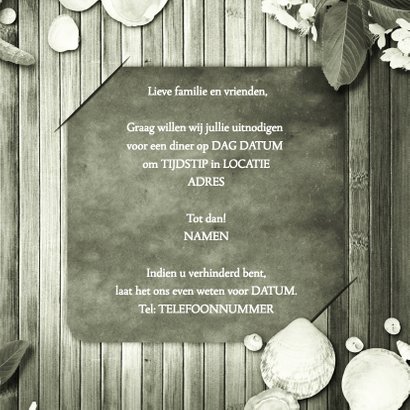 Lieve familie en vrienden,
Graag willen wij jullie uitnodigen
voor een diner op DAG DATUM
om TIJDSTIP in LOCATIE
ADRES
Tot dan!
NAMEN
Indien u verhinderd bent,
laat het ons even weten voor DATUM.
Tel: TELEFOONNUMMER